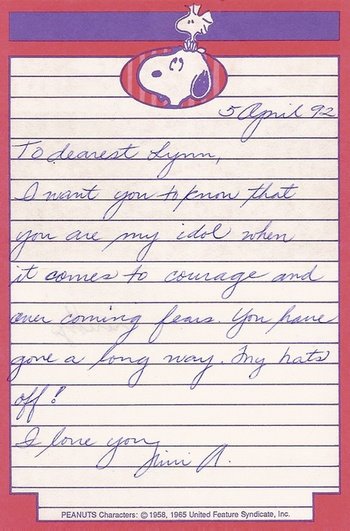 5 April 92
To dearest Lynn,
I want you to know that
you are my idol when
it comes to courage and
over coming fears. You have
gone a long way. My hats
off!
I love you,
PEANUTS Characters: © 1958, 1965 United Feature Syndicate, Inc.